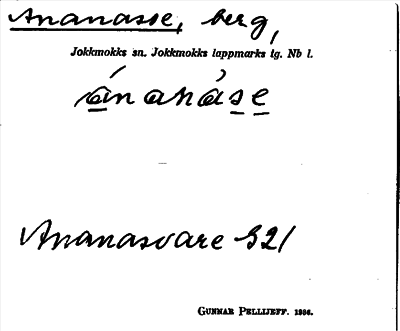 Ananasse, berg,
Jokkmokks sn. Jokkmokks lappmarks tg. Nb l.
ánanáse
Ananasvare S21
GUNNAR PELLIJEFF. 1936.